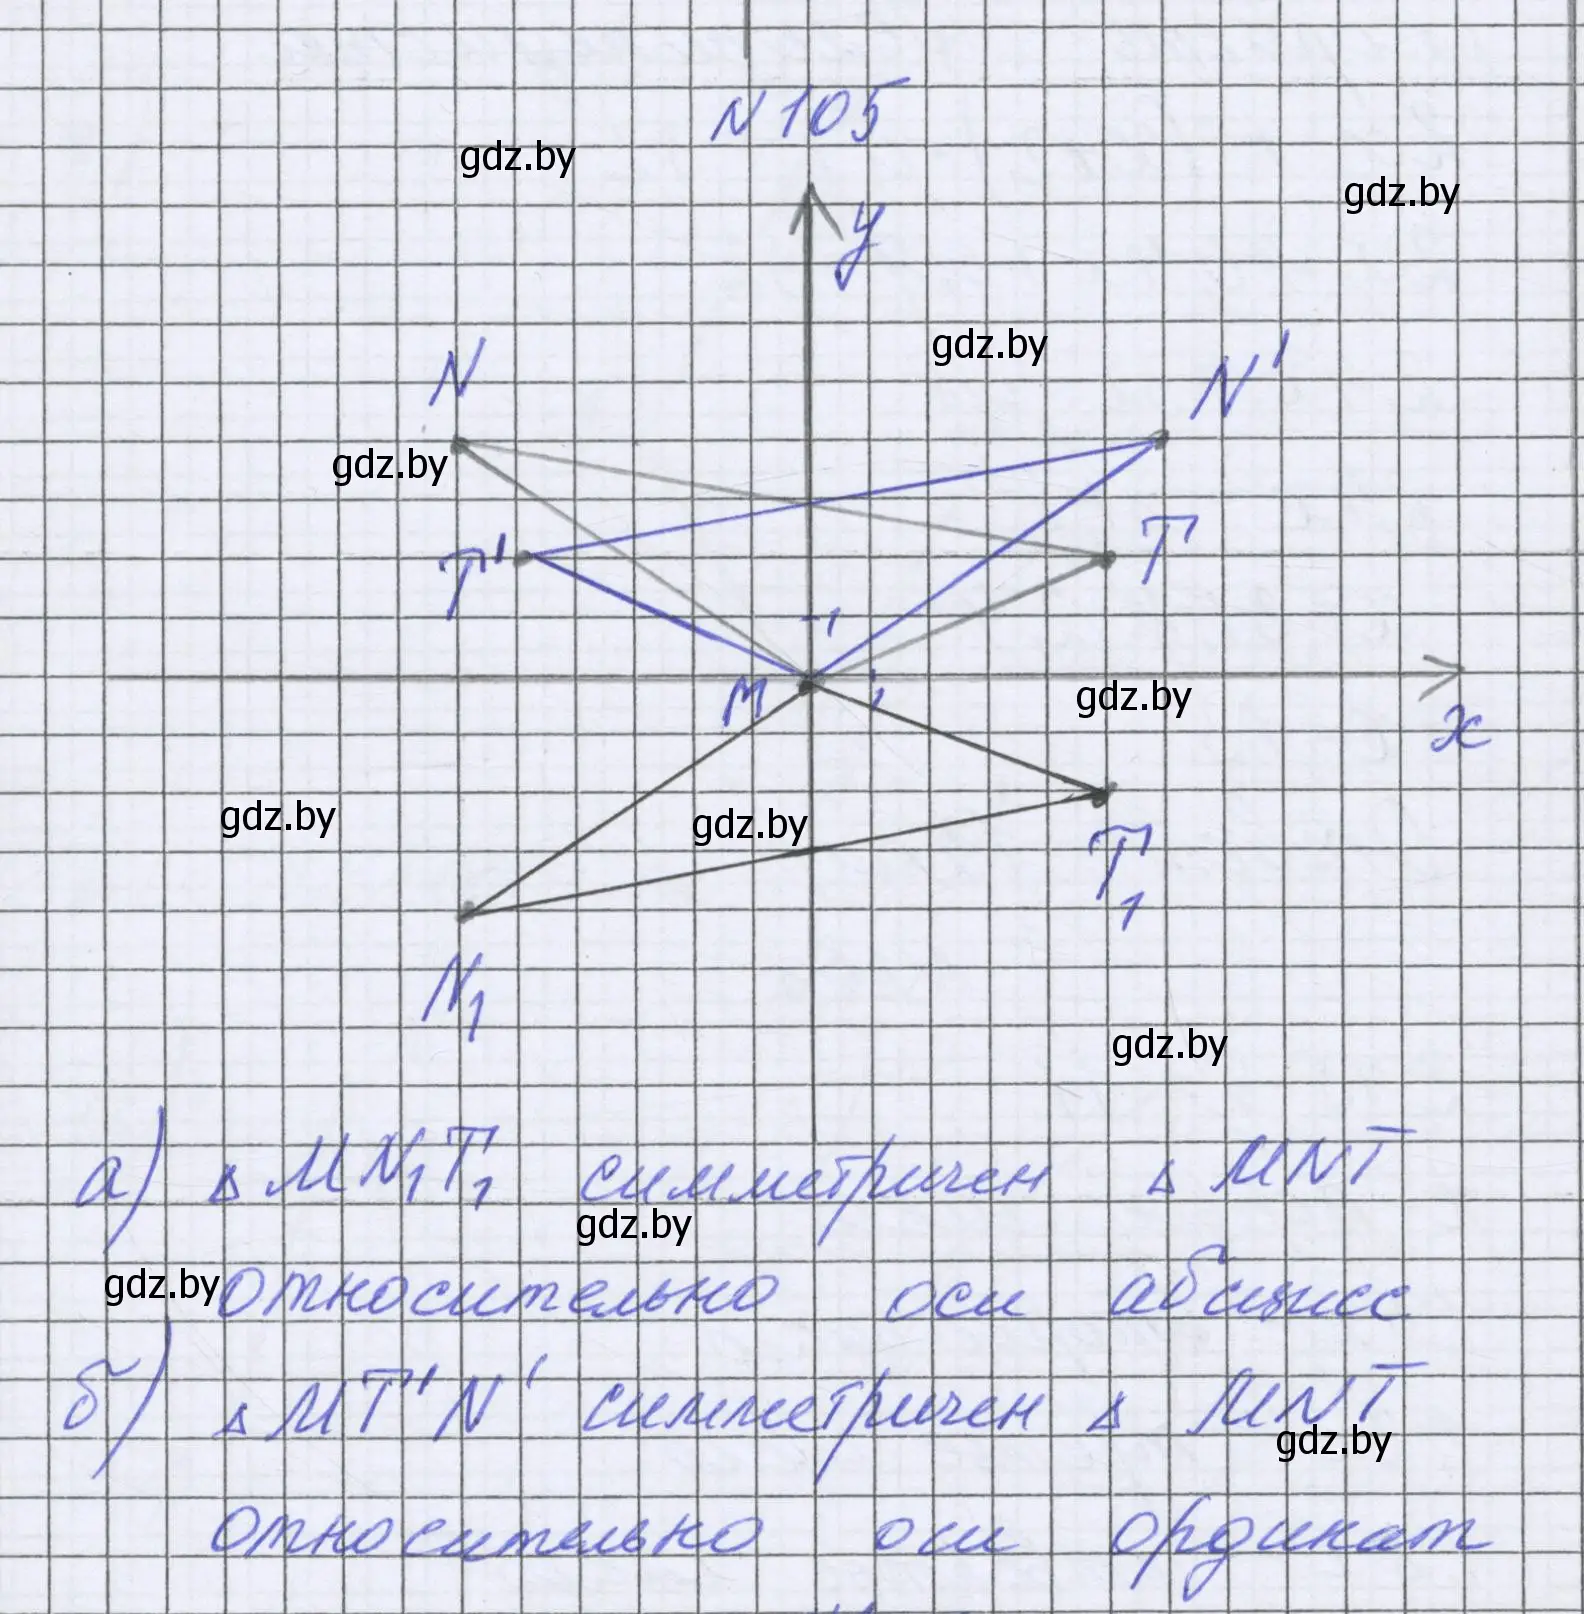 N 105
gdz.by
gdz.by
y
gdz.by
N
N'
gdz.by
T'
T
1
M
1
gdz.by
x
gdz.by
gdz.by
T1
N1
gdz.by
а) △MN₁T₁ симметричен △MNT
gdz.by
gdz.by
относительно оси абсцисс
б) △MT'N' симметричен △MNT
gdz.by
относительно оси ординат